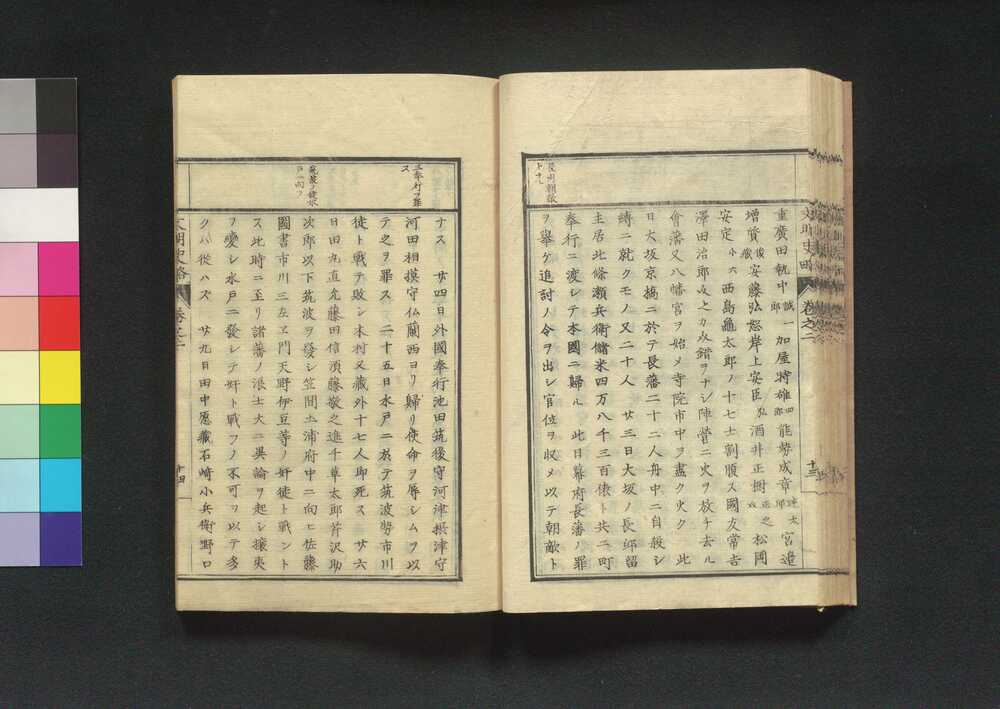 文明史略 卷之二 十三
長州朝敵トナル
重廣田執中誠一郎加屋時雄四郎能勢成章達太郎宮邉
増質後藏安藤弘怒岸上安臣弘酒井正樹庄之助松岡
安定小六西島龜太郎ノ十七士割腹ス國友常吉
澤田治郎之カ介錯ヲナシ陣營ニ火ヲ放チ去ル
會藩又八幡宮ヲ始メ寺院市中ヲ盡ク火ク 此
日大坂京攝ニ於テ長藩二十二人舟中ニ自殺シ
縛ニ就クモノ又二十人 廿三日大坂ノ長邸留
主居北條瀬兵衛儲米四万八千三百俵ト共ニ町
奉行ニ渡シテ本國ニ歸ル 此日幕府長藩ノ罪
ヲ擧ケ進討ノ令ヲ出シ官位ヲ収メ以テ朝敵ト
三奉行ヲ罪ス
筑波ノ徒水戸ニ向フ
ナス 廿四日外國奉行池田筑後守河津摂津守
河田相摸守仏蘭西ヨリ歸リ使命ヲ辱シムヲ以
テ之ヲ罪ス 二十五日水戸ニ於テ筑波勢市川
徒ト戰テ敗シ木村又藏外十七人即死ス 廿六
日田丸直允藤田信須藤敬之進千草太郎芹沢助
次郎以下筑波ヲ發シ笠間土浦府中ニ向ヒ佐藤
圖書市川三左ヱ門天野伊豆等ノ奸徒ト戰ント
ス此時ニ至リ諸藩ノ浪士大ニ異論ヲ起シ攘夷
ヲ變シ水戸ニ發シテ奸ト戰フノ不可ヲ以テ多
ク从従ハズ 廿九日田中愿藏石崎小兵衛野口
文明史略 卷之二 十四